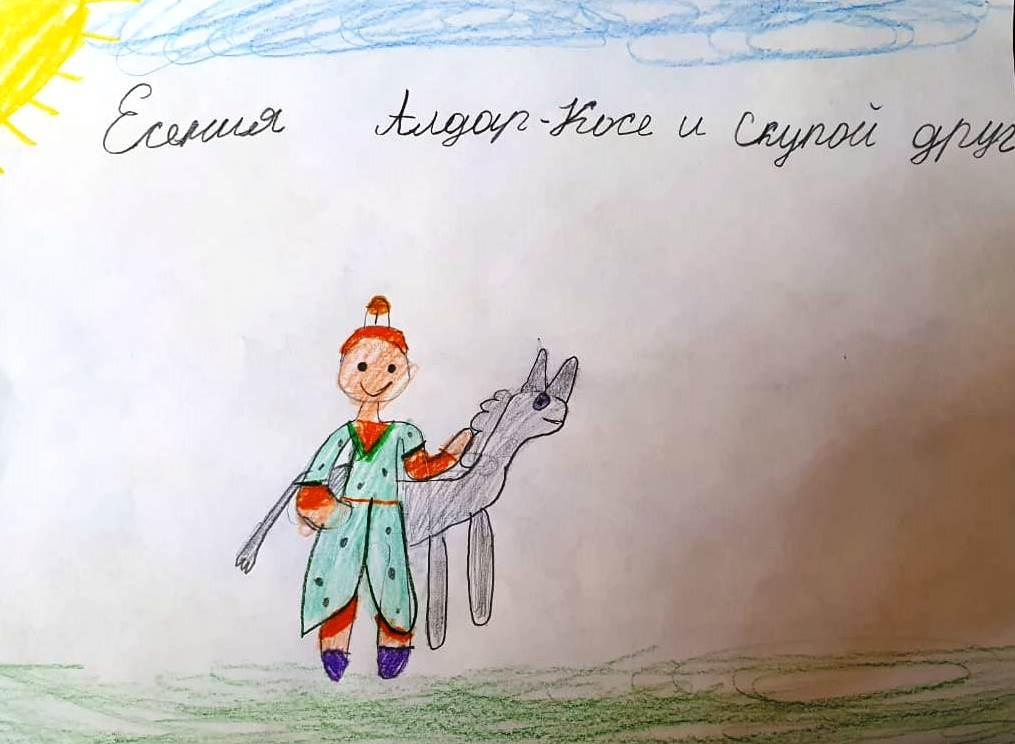 Есения Алдар-Косе и Скупой друг